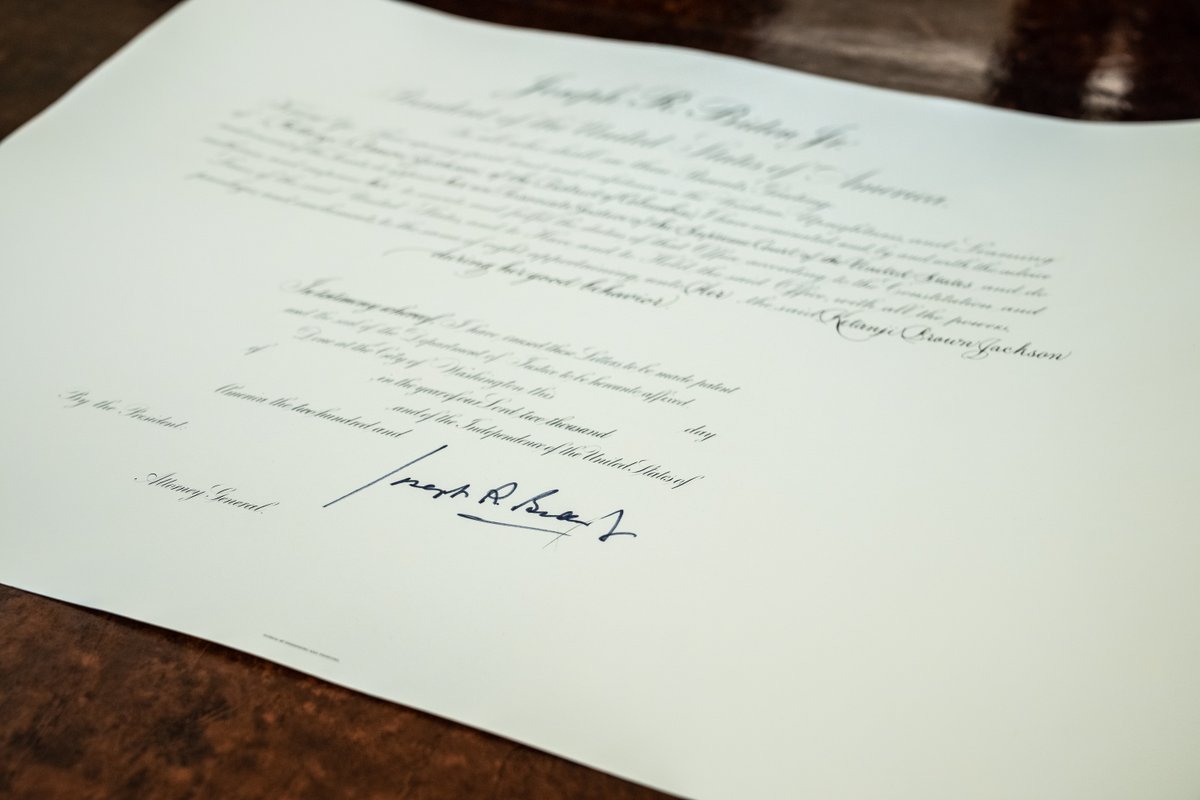 Joseph R. Biden Jr.
President of the United States of America
To all who shall see these Presents, Greeting:
Know Ye; That reposing special trust and confidence in the Wisdom, Uprightness, and Learning
of Ketanji Brown Jackson, of the District of Columbia, I have nominated, and, by and with the advice
and consent of the Senate, do appoint her Associate Justice of the Supreme Court of the United States and do
authorize and empower her to execute and fulfil the duties of that Office according to the Constitution and
Laws of the said United States, and to Have and to Hold the said Office, with all the powers,
privileges and emoluments to the same of right appertaining, unto her, the said Ketanji Brown Jackson
during her good behavior.
In testimony whereof, I have caused these Letters to be made patent
and the seal of the Department of Justice to be hereunto affixed.
Done at the City of Washington this day
of in the year of our Lord two thousand
and of the Independence of the United States of
America the two hundred and
By the President:
Joseph R. Biden Jr
Attorney General.